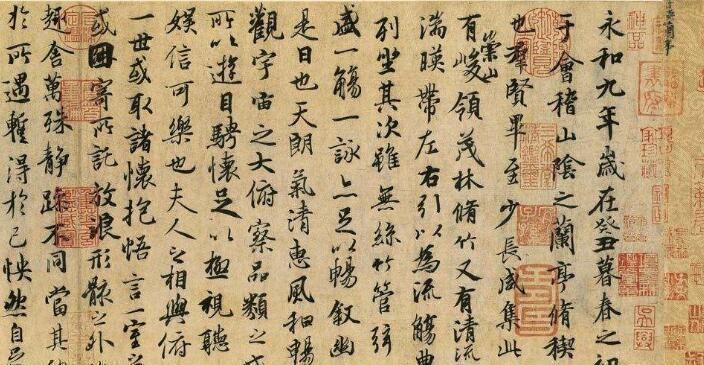 永和九年歲在癸丑暮春之初
于會稽山陰之蘭亭脩稧
也羣賢畢至少長咸集此
有崇山峻領茂林脩竹又有清流
湍暎帶左右引以為流觴曲
列坐其次雖無絲竹管弦
盛一觴一詠亦足以暢敘幽
是日也天朗氣清惠風和暢
觀宇宙之大俯察品類之盛
所以遊目騁懷足以極視聽
娛信可樂也夫人之相與俯
一世或取諸懷抱悟言一室
或因寄所託放浪形骸之外
趣舍萬殊靜躁不同當其
於所遇蹔得於己怏然自足